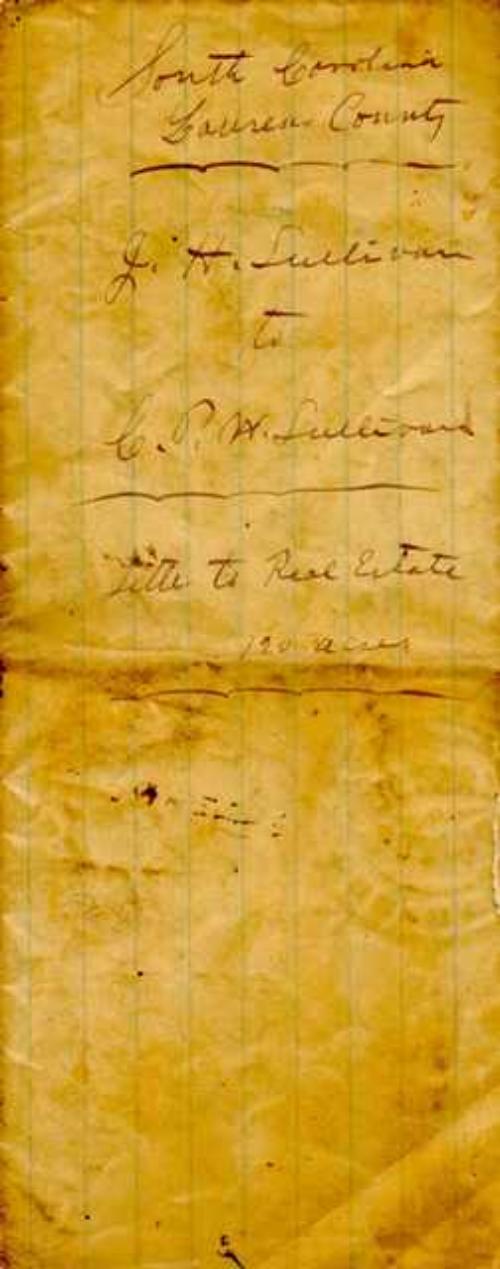 South Carolina
Laurens County
J. H. Sullivan
to
C. P. W. Sullivan
Title to Real Estate
120 acres